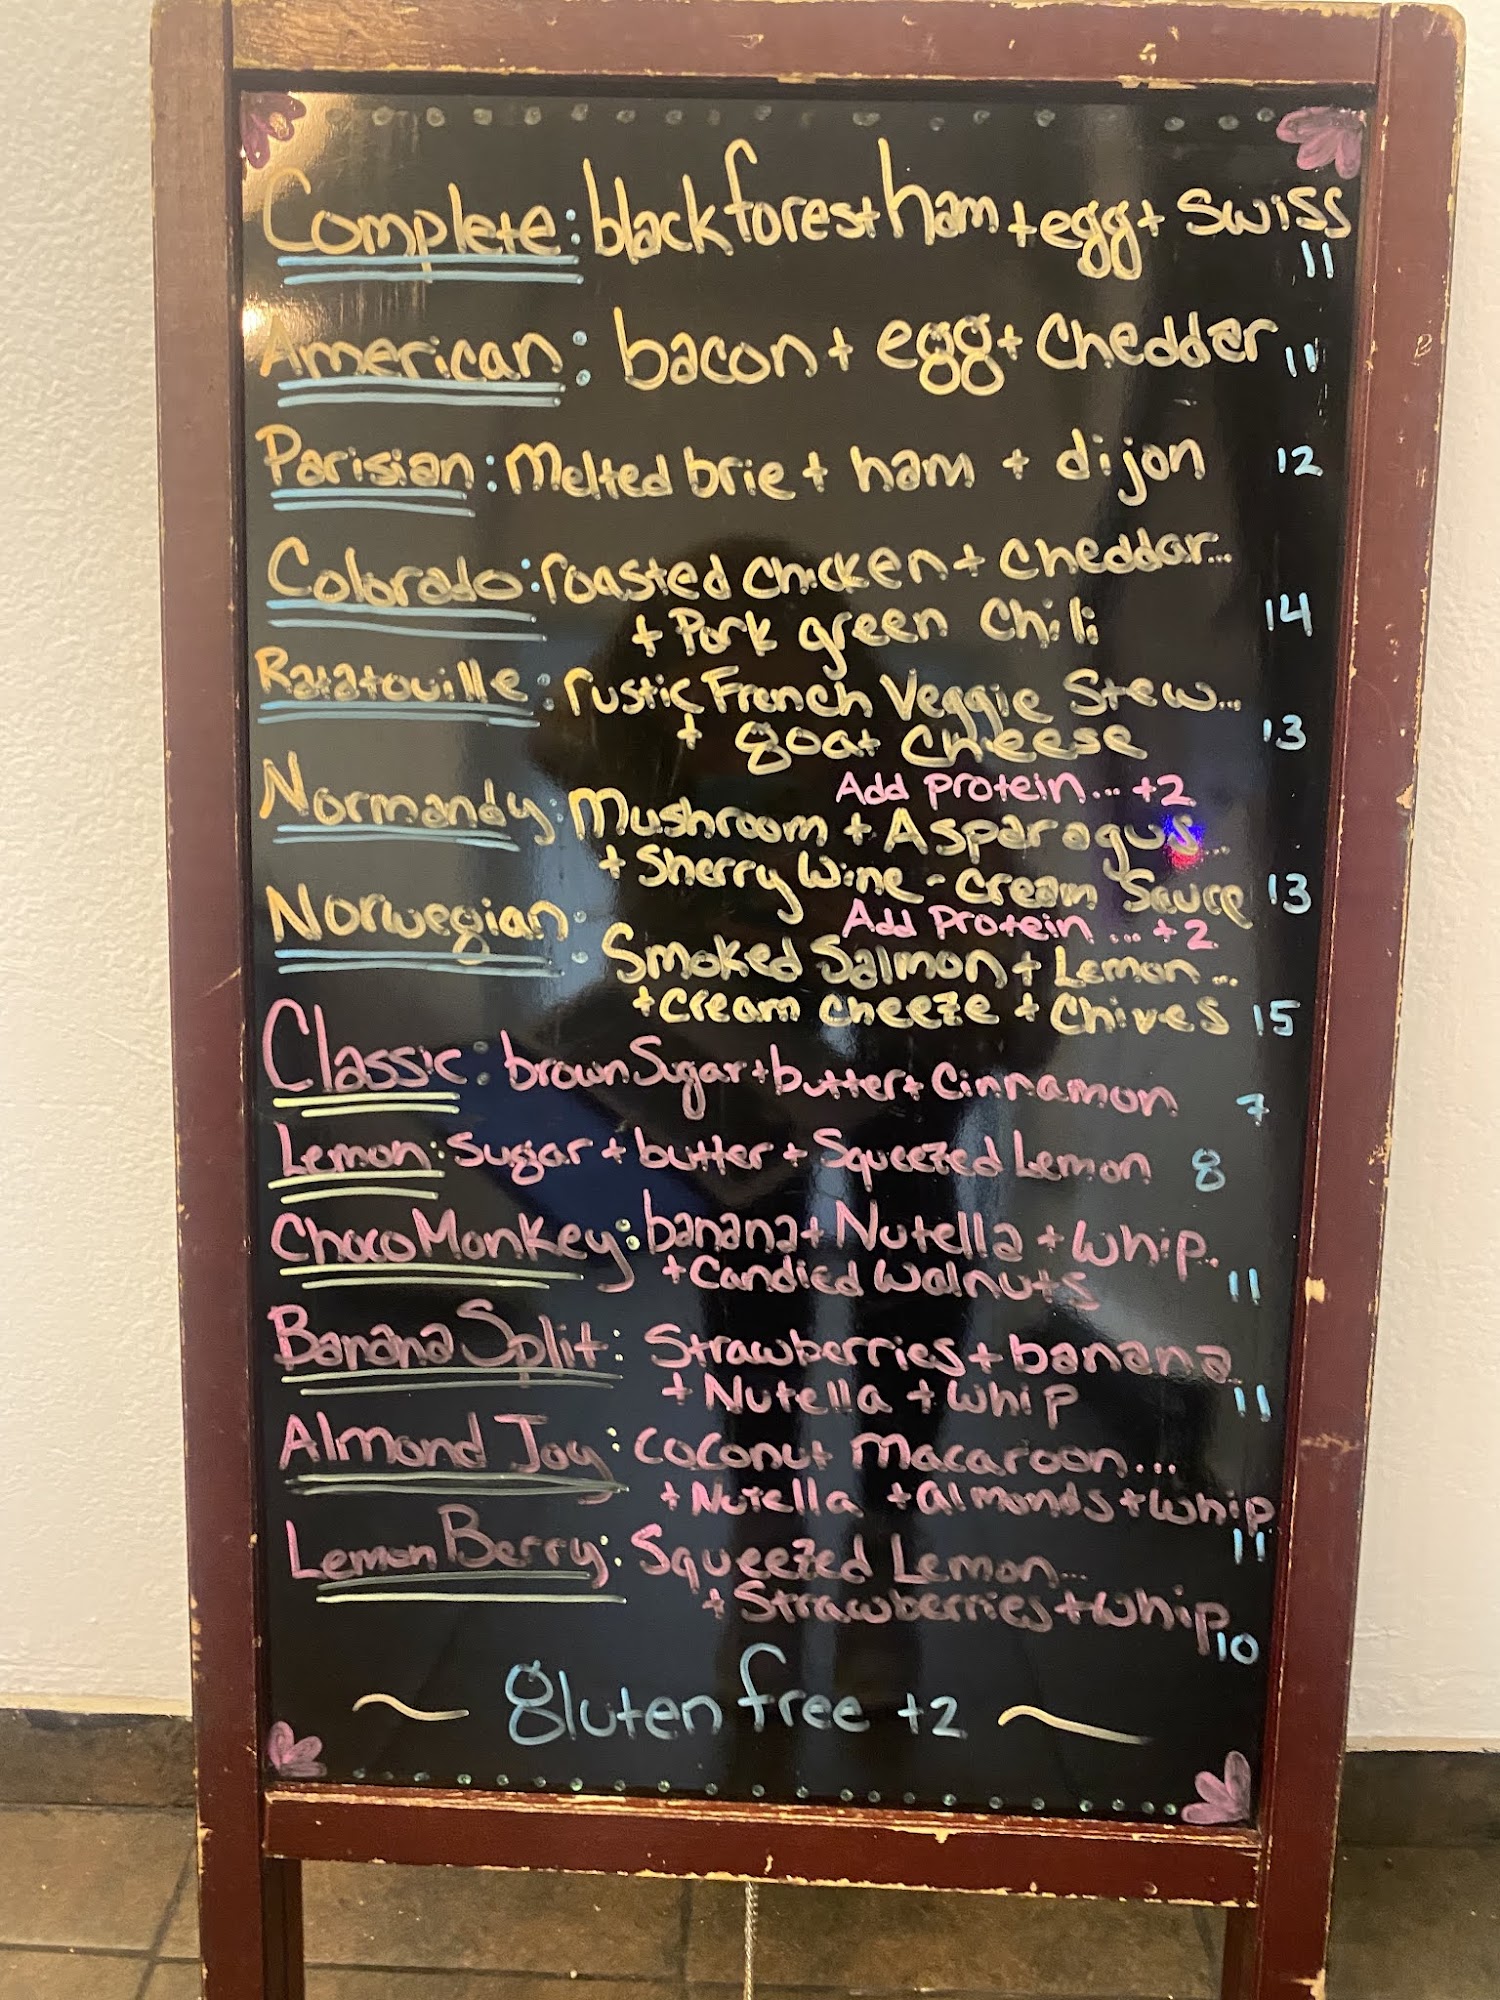 Complete: black forest ham + egg + Swiss
11
American: bacon + egg + Cheddar 11
Parisian: Melted brie + ham + dijon 12
Colorado: roasted chicken + Cheddar...
+ Pork green Chili 14
Ratatouille: rustic French Veggie Stew...
+ goat cheese 13
Add protein... +2
Normandy: Mushroom + Asparagus...
+ Sherry Wine - Cream Sauce 13
Add Protein ... +2
Norwegian: Smoked Salmon + Lemon...
+ cream cheeze + Chives 15
Classic: brown Sugar + butter + Cinnamon 7
Lemon: Sugar + butter + Squeezed Lemon 8
Choco Monkey: banana + Nutella + Whip..
+ Candied Walnuts 11
Banana Split: Strawberries + banana
+ Nutella + Whip 11
Almond Joy: Coconut Macaroon...
+ Nutella + almonds + whip
11
Lemon Berry: Squeezed Lemon...
+ Strawberries + whip
10
~ gluten free +2 ~